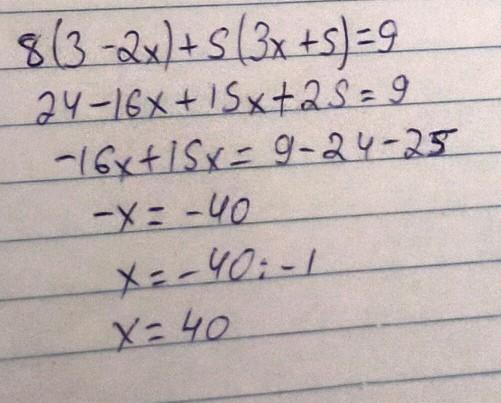 8(3-2x)+5(3x+5)=9
24-16x+15x+25=9
-16x+15x=9-24-25
-x=-40
x=-40:-1
x=40